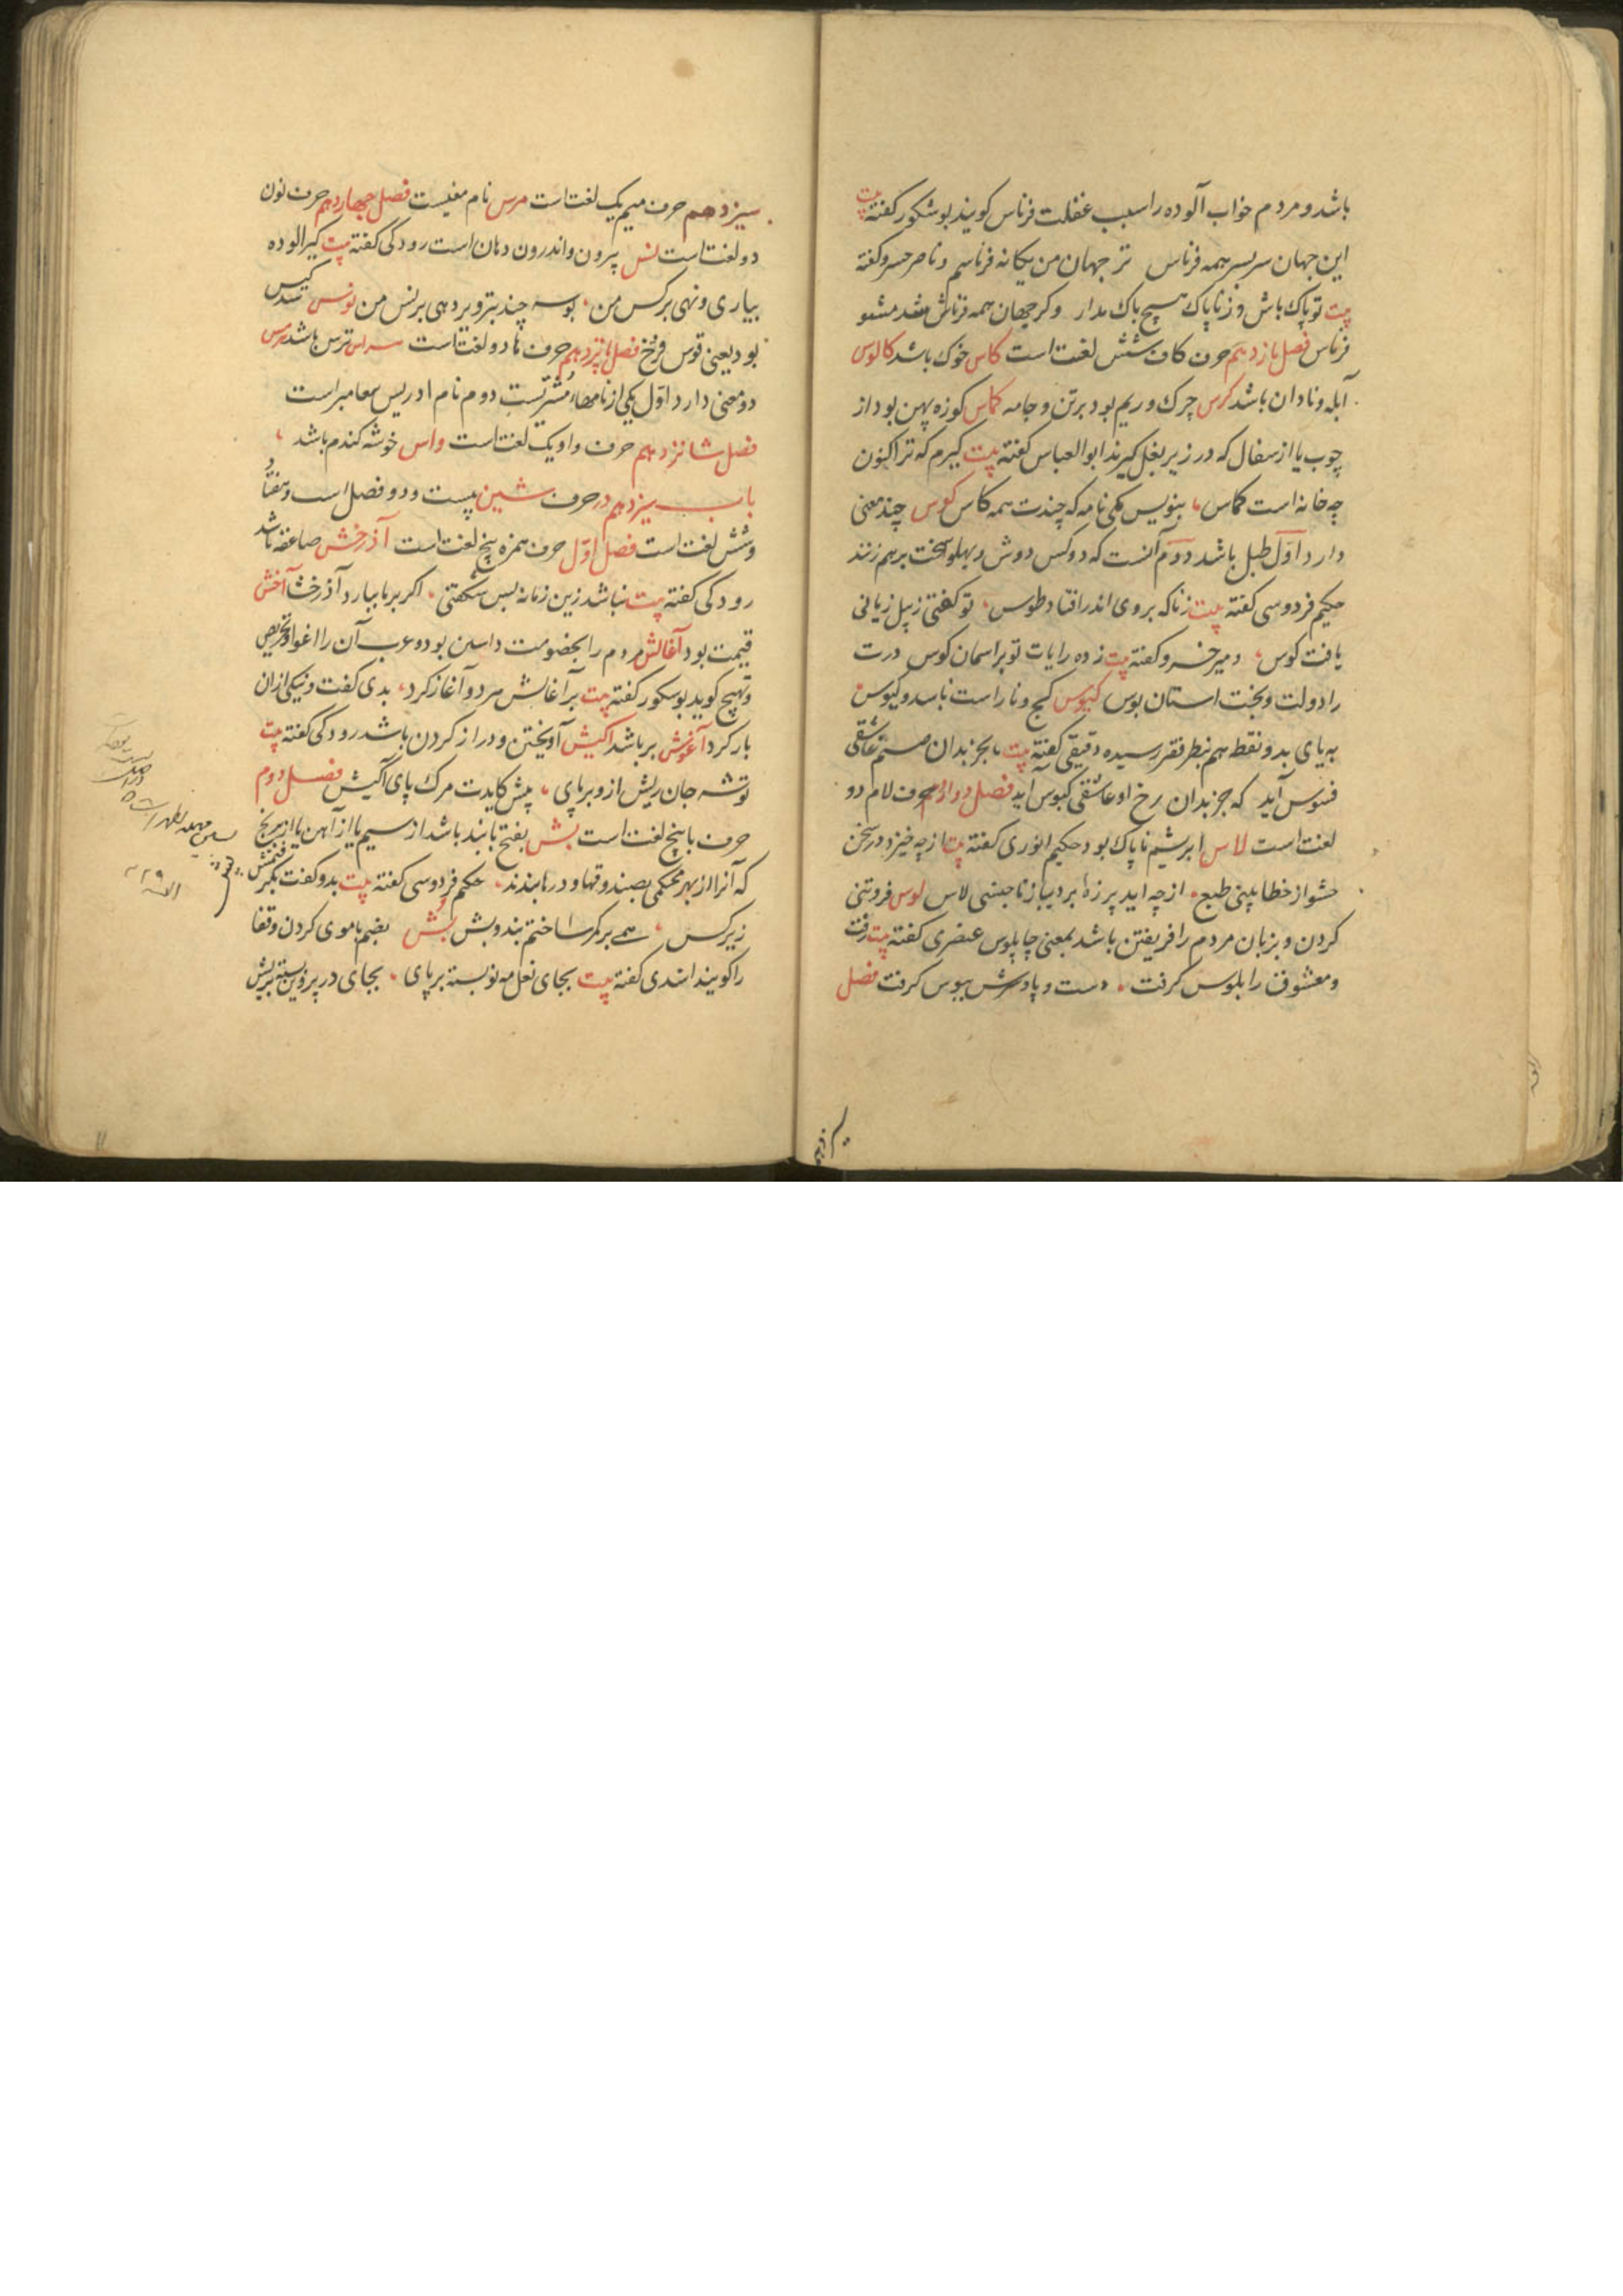 باشد و مردم خواب آلوده را سبب غفلت فرناس کویند بوشکور کفته بیت
این جهان سربسر همه فرناس تر جهان من یکانه فرناسم و ناصر خسرو کفته
بیت تو پاک باش و ز ناپاک هیچ باک مدار وکر جهان همه فرناس شد مشو
فرناس فصل یازدهم حرف کاف شش لغت است کاس خوک باشد کالوس
ابله و نادان باشد کرس چرک و ریم بود برتن و جامه کماس کوزه پهن بود از
چوب یا از سفال که در زیر بغل کیرند ابوالعباس کفته بیت کیرم که ترا کنون
چه خانه است کماس بنویس یکی نامه که چندت همه کاس کوس چند معنی
دارد اول طبل باشد دوم آنست که دو کس دوش و پهلو سخت برهم زنند
حکیم فردوسی کفته بیت زناکه بروی اندر افتاد طوس تو کفتی ز پیل زیانی
یافت کوس و میر خسرو کفته بیت زده رایات تو بر اسمان کوس درت
را دولت و بخت استان بوس کیوس کج و ناراست باشد و کیوس
به یای بدو نقطه هم بنظر فقیر رسیده دقیقی کفته بیت بجز بدان صنم عاشقی
فسوس آید که جز بدان رخ او عاشقی کیوس آید فصل دوازدهم حرف لام دو
لغت است لاس ابریشم ناپاک بود حکیم انوری کفته بیت از چه خیزد در سخن
حشو از خطا بینی طبع از چه اید پرزه بر دیبا ز ناجنسی لاس لوس فروتنی
کردن و بزبان مردم را فریفتن باشد بمعنی چاپلوس عنصری کفته بیت رفت
و معشوق را بلوس کرفت دست و پا و سرش ببوس کرفت فصل
سیزدهم
سیزدهم حرف میم یک لغت است مرس نام مغیست فصل چهاردهم حرف نون
دو لغت است نس بیرون و اندرون دهان است رودکی کفته بیت کیر الوده
بیاری و نهی برکس من بوسه چند بتزویر دهی برنس من نوس
بود یعنی قوس قزخ فصل پانزدهم حرف ها دو لغت است هراس ترس باشد هرمس
دو معنی دارد اول یکی از نامهاء مشتریست دوم نام ادریس پیغامبر است
فصل شانزدهم حرف واو یک لغت است واس خوشه کندم باشد
باب سیزدهم در حرف شین بیست و دو فصل است و هفتاد
و شش لغت است فصل اول حرف همزه پنج لغت است آذرخش صاعقه باشد
رودکی کفته بیت نباشد زین زمانه بس شکفتی اکر برما ببارد آذرخشا آخش
قیمت بود آغالش مردم را بخصومت داشتن بود و عرب آن را اغوا و تحریص
و تهییج کوید بوشکور کفته بیت برآغالش هردو آغاز کرد بدی کفت و نیکی ازان
باز کرد آغوش بر باشد اکیش آویختن و دراز کردن باشد رودکی کفته بیت
توشه جان ریش ازو بربای پیش کایدت مرک پای آکیش فصل دوم
حرف با پنج لغت است بش بفتح با بند باشد از سیم یا از آهن یا از برنج
که آنرا از بهر محکمی بصندوقها و درها بندند حکیم فردوسی کفته بیت بدو کفت بکیر
زیرکس همی برکمر ساختم بند و بش بش بضم با موی کردن و قفا
را کویند اسدی کفته بیت بجای نعل مه نو بسته بر پای بجای در پروین بسته بر بش